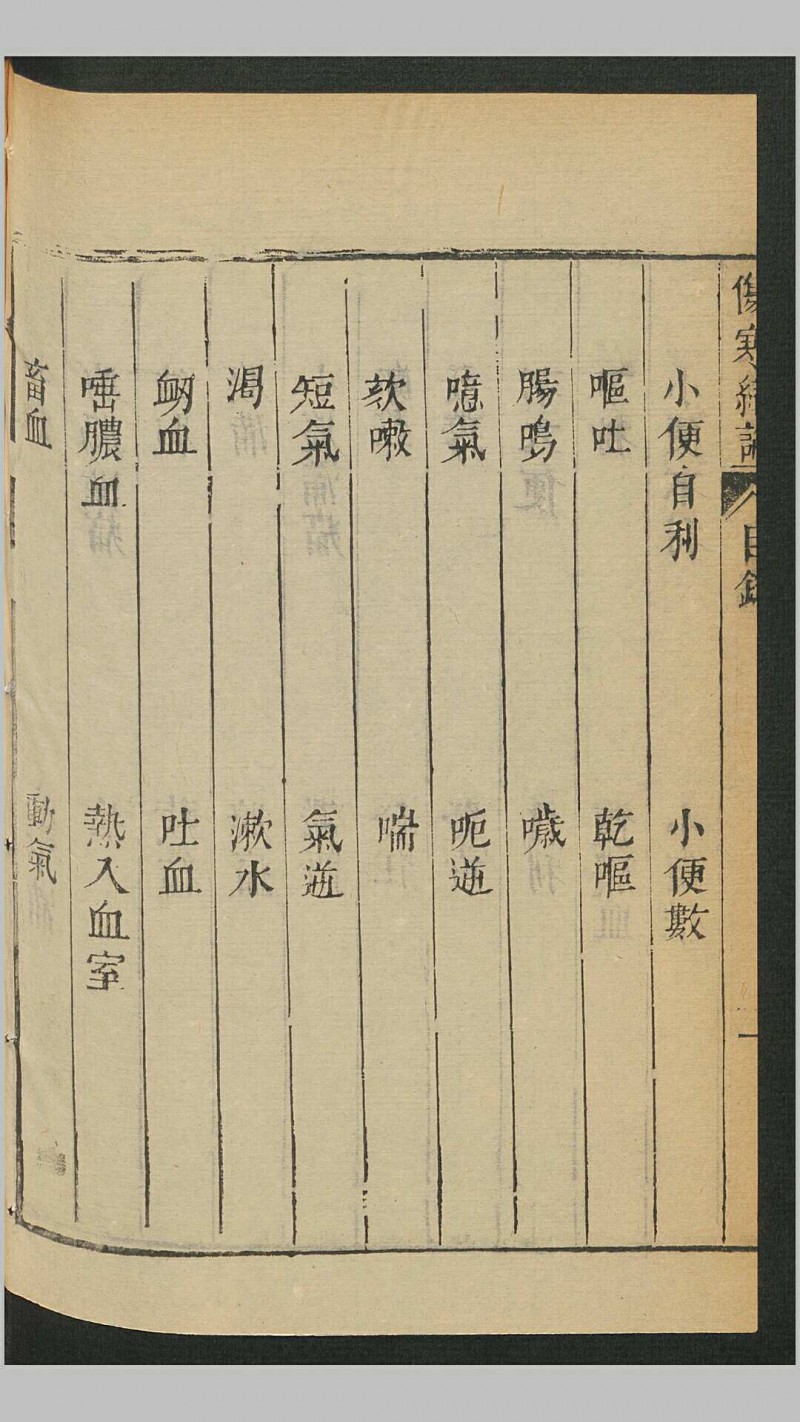 傷寒緒論 目錄
小便自利 小便數
嘔吐 乾嘔
腸鳴 噦
噫氣 呃逆
欬嗽 喘
短氣 氣逆
渴 漱水
衂血 吐血
唾膿血 熱入血室
畜血 動氣